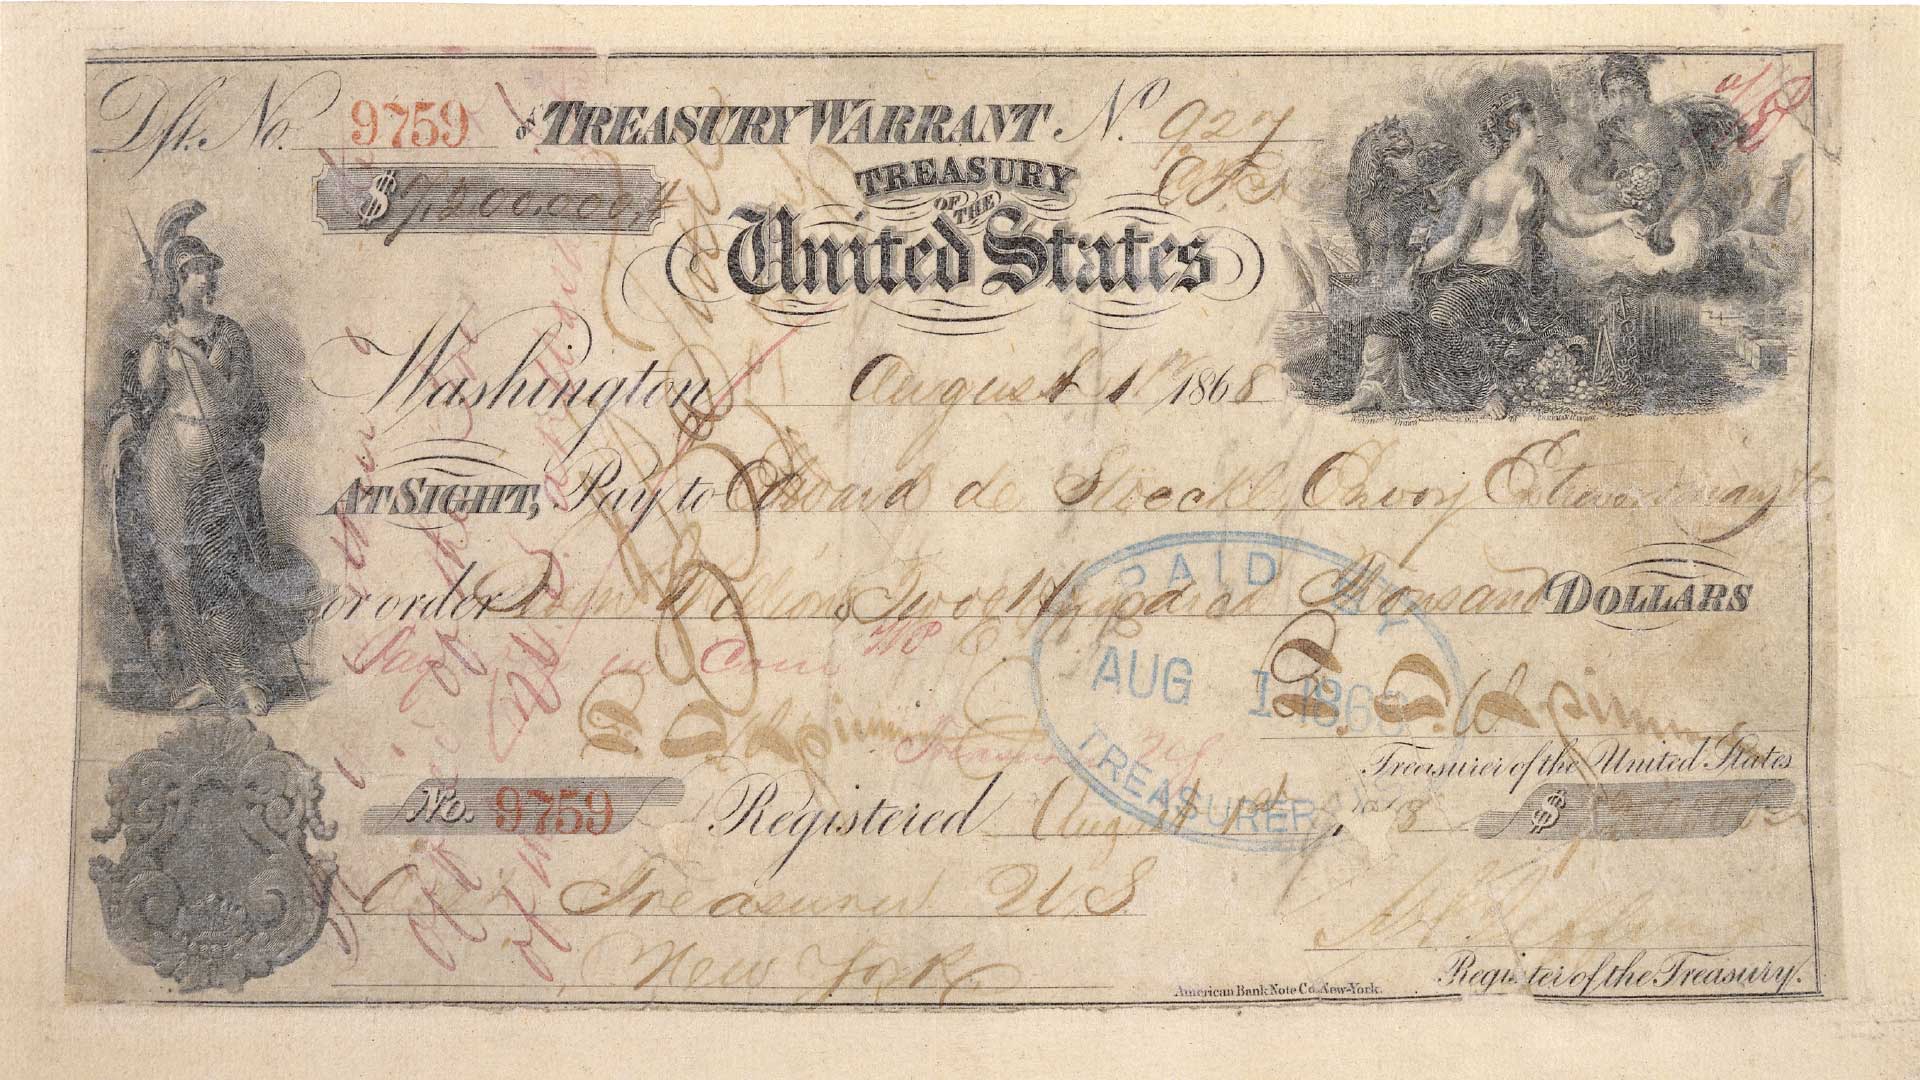 Dft. No. 9759 on TREASURY WARRANT No. 927
$7,200.000,
TREASURY
OF THE
United States
Washington August 1st 1868
AT SIGHT, Pay to Edward de Stoeckl, Envoy Extraordinary &c
or order Seven Million Two Hundred Thousand DOLLARS
Pay in Coin
PAID BY
AUG 1 1868
TREASURER
Treasurer of the United States
No. 9759 Registered August 1st, 1868 $
Asst Treasurer U S
New York
American Bank Note Co. New-York.
Register of the Treasury.